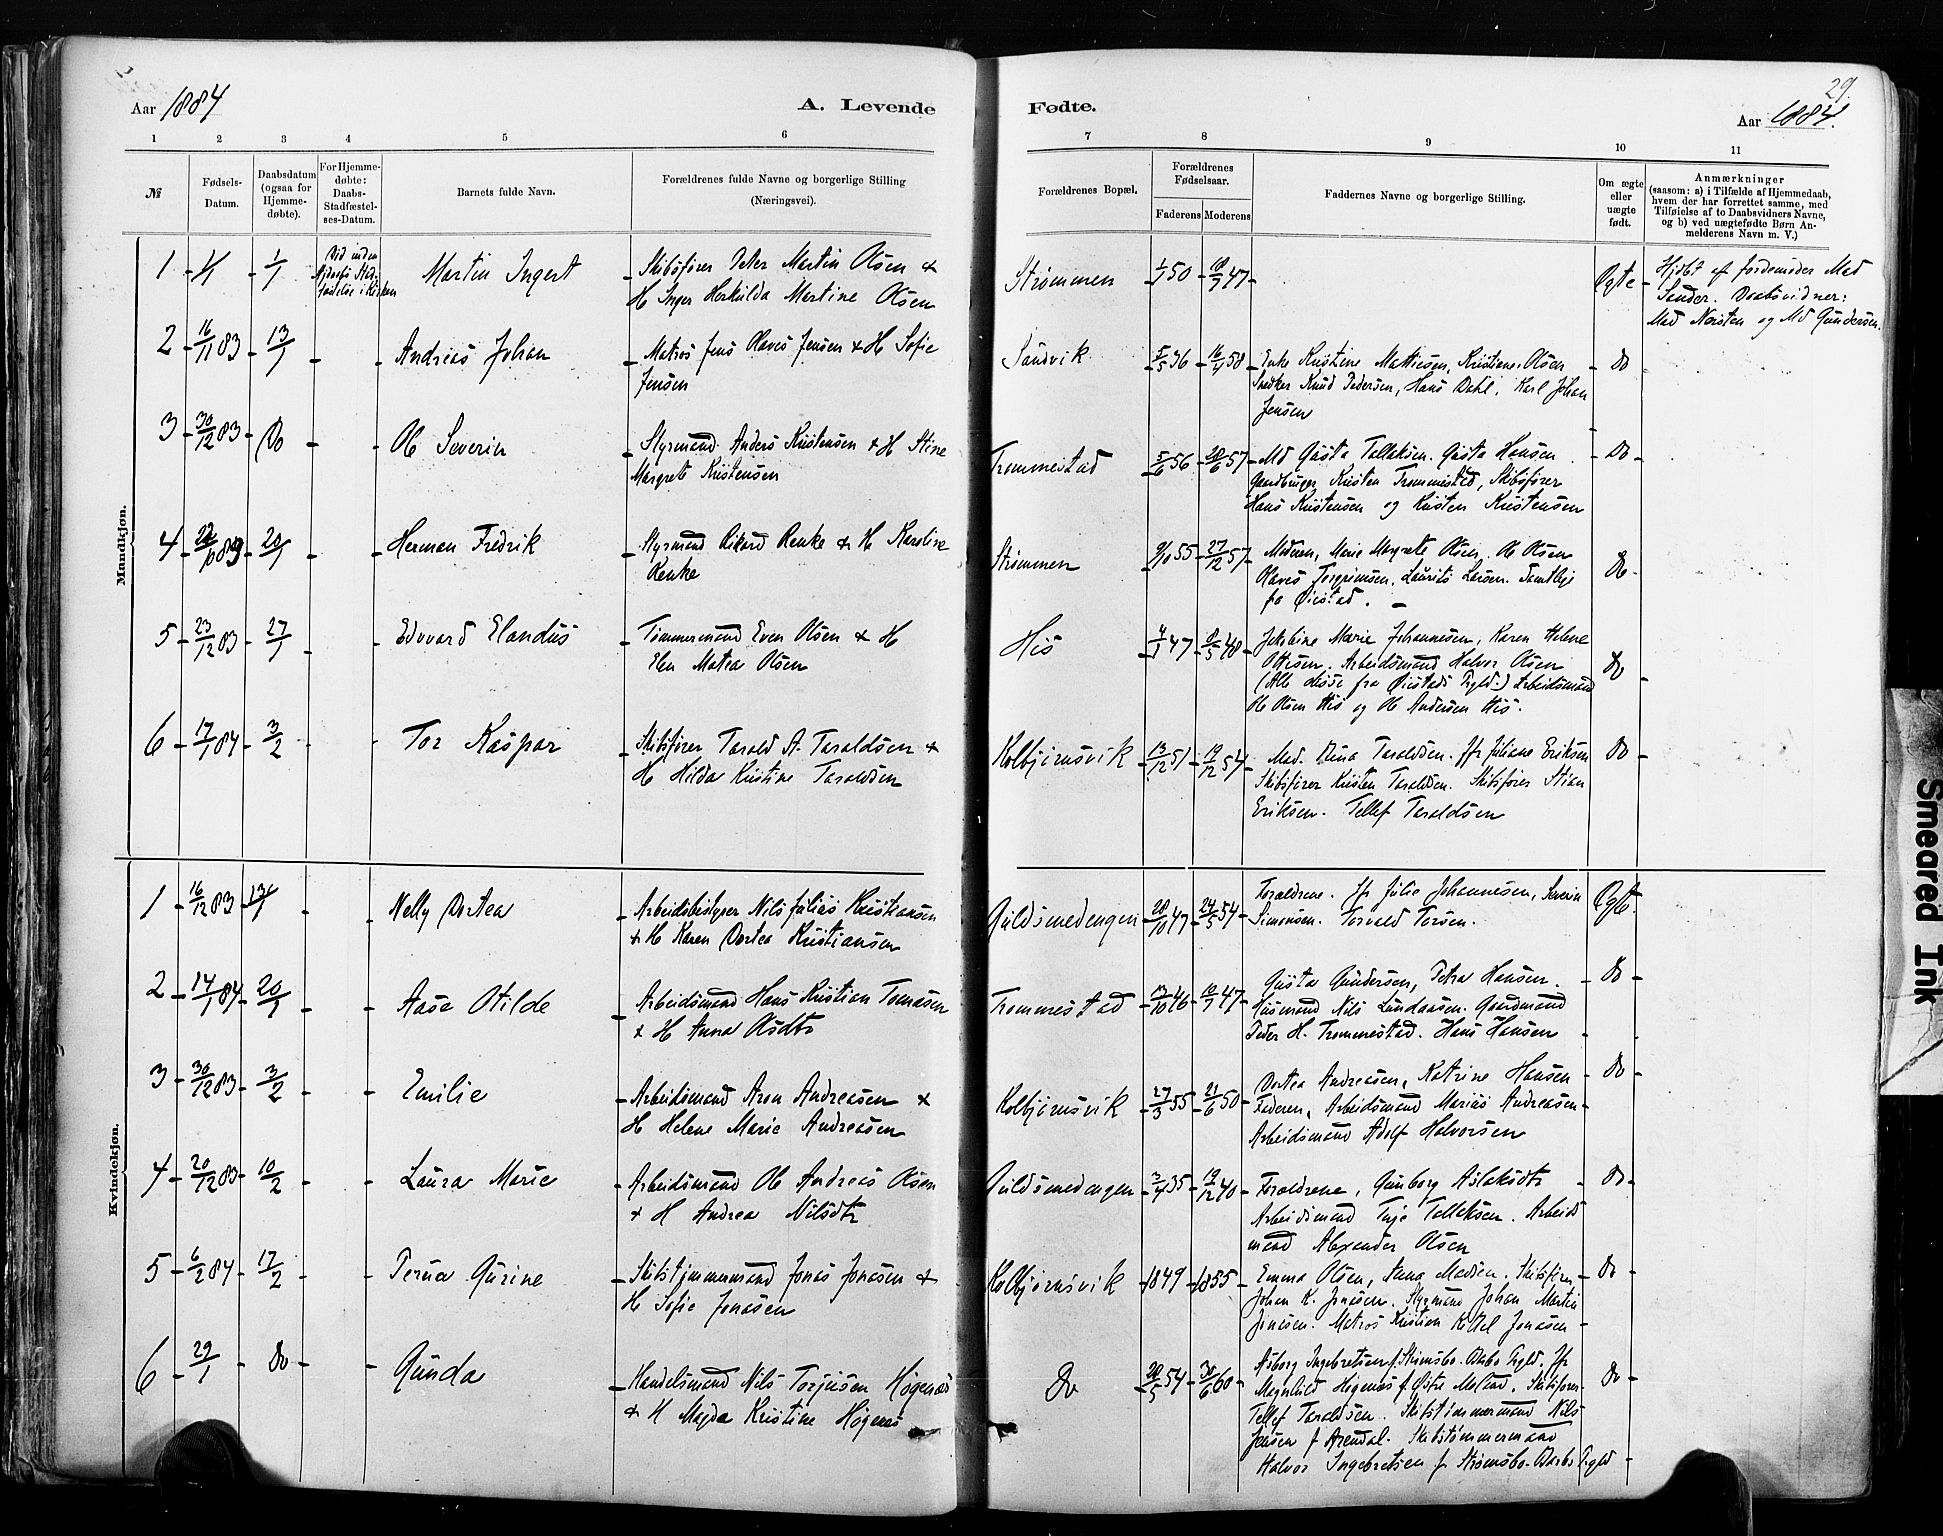 29.
Aar 1884
A. Levende
Fødte.
Aar 1884.
1 2 3 4 5 6 7 8 9 10 11
№
Fødsels-
Datum.
Daabsdatum
(ogsaa for
Hjemme-
døbte).
For Hjemme-
døbte:
Daabs-
Stadfæstel-
ses-Datum.
Barnets fulde Navn.
Forældrenes fulde Navne og borgerlige Stilling
(Næringsvei).
Forældrenes Bopæl.
Forældrenes
Fødselsaar.
Faderens Moderens
Faddernes Navne og borgerlige Stilling.
Om ægte
eller
uægte
født.
Anmærkninger
(saasom: a) i Tilfælde af Hjemmedaab,
hvem der har forrettet samme, med
Tilføielse af to Daabsvidners Navne,
og b) ved uægtefødte Børn An-
melderens Navn m. V.)
Mandkjøn.
1 1/1 1/1 Martin Ingert
Skibsfører Peter Martin Olsen &
H Inger Herkulda Martine Olsen
Strømmen 1/1 50 47
Ægte
Hjdbt af Jordemoder Mad
Sander. Daabsvidner:
Mad Nersten og Md Gundersen.
2 16/11 83 13/1 Andreas Johan
Matros Jens Olaves Jensen & H Sofie
Jensen
Sandvik 5/5 36 58
Enke Kristine Mathiesen, Kristiane Olsen
Knud Pedersen, Hans Dahl. Karl Johan
Jensen
Do
3 30/12 83 Do Ole Severin
Styrmand Anders Kristensen & H Stine
Margrete Kristensen
Trommestad 5/6 56 28/6 57
Md Gusta Tellaksen. Gusta Hansen
Gaardbruger Kristen Trommestad, Skibsfører
Hans Kristensen og Kristen Kristensen
Do
4 20/1 Herman Fredrik
Styrmand Rikard Renke & H Karoline
Renke
Strømmen 9/10 55 27/12 57
Moderen, Marie Margrete Olsen. Ole Olsen
Olaves Torgrimsen, Laurits Larsen. Samtlige
fra Øiestad.
Do
5 23/12 83 27/1 Edvard Elandus
Tømmermand Even Olsen & H
Elen Matea Olsen
His 47 8/5 48
Jakobine Marie Johannesen, Karen Helene
Ottesen. Arbeidsmand Halvor Olsen
(Alle disse fra Øiestads Prgld.) Arbeidsmand
Ole Olsen His og Ole Andersen His.
Do
6 17/1 84 3/2 Tor Kaspar
Skibsfører Tarald A. Taraldsen &
H Hilda Kristine Taraldsen
Kolbjørnsvik 13/12 51 19/12 54
Mad. Taraldsen. Jfr Juliane Eriksen
Skibsfører Kristen Taraldsen. Skibsfører Stian
Eriksen. Tellef Taraldsen
Do
Kvindekjøn.
1 16/12 83 13/1 Nelly Dortea
Arbeidsbestyrer Nils Julius Kristiansen
& H Karen Dortea Kristiansen
Guldsmedengen 28/10 47 24/5 54
Forældrene. Jfr Julie Johannesen, Severin
Simonsen. Torvald Torsen.
Ægte.
2 14/1 84 20/1 Aase Otilde
Arbeidsmand Hans Kristian Tomasen
& H Anna Olsdtr
Trommestad 13/10 46 47
Gusta Gundersen, Petra Hansen.
Husmand Nils Lundaasen. Gaardmand
Peder H. Trommestad. Hans Hansen
Do
3 30/12 83 3/2 Emilie
Arbeidsmand Aron Andreasen &
H Helene Marie Andreasen
Kolbjørnsvik 27/3 55 21/6 50
Dortea Andreasen, Katrine Hansen
Faderen, Arbeidsmand Marius Andreasen
Arbeidsmand Adolf Halvorsen
Do
4 20/12 83 10/2 Laura Marie
Arbeidsmand Ole Andreas Olsen
& H Andrea Nilsdtr
Guldsmedengen 3/4 35 19/12 40
Forældrene, Gunborg Aslaksdtr
Arbeidsmand Terje Tellaksen. Arbeids
mand Alexander Olsen
Do
5 6/2 84 17/2 Gurine
Skibstømmermand Jonas Jonasen &
H Sofie Jonasen
Kolbjørnsvik 1849 1855
Emma Olsen, Anna Madsen. Skibsfører
Johan K. Jonasen. Styrmand Johan Martin
Jonasen. Matros Kristian Kittel Jonasen
Do
6 29/1 Do Gunda
Handelsmand Nils Torjusen Høgenæs
& H Magda Kristine Høgenæs
Do 28/5 54 30/6 60
Asborg Ingebretsen f. Strømsbo. Barbo Prgld. Jfr
Magnhild Høgenæs f. Østre Moland. Skibsfører
Tellef Taraldsen. Skibstømmermand Nils
Jensen f Arendal. Skibstømmermand
Halvor Ingebretsen f Strømsbo. Barbo Prgld
Do
Smeared Ink